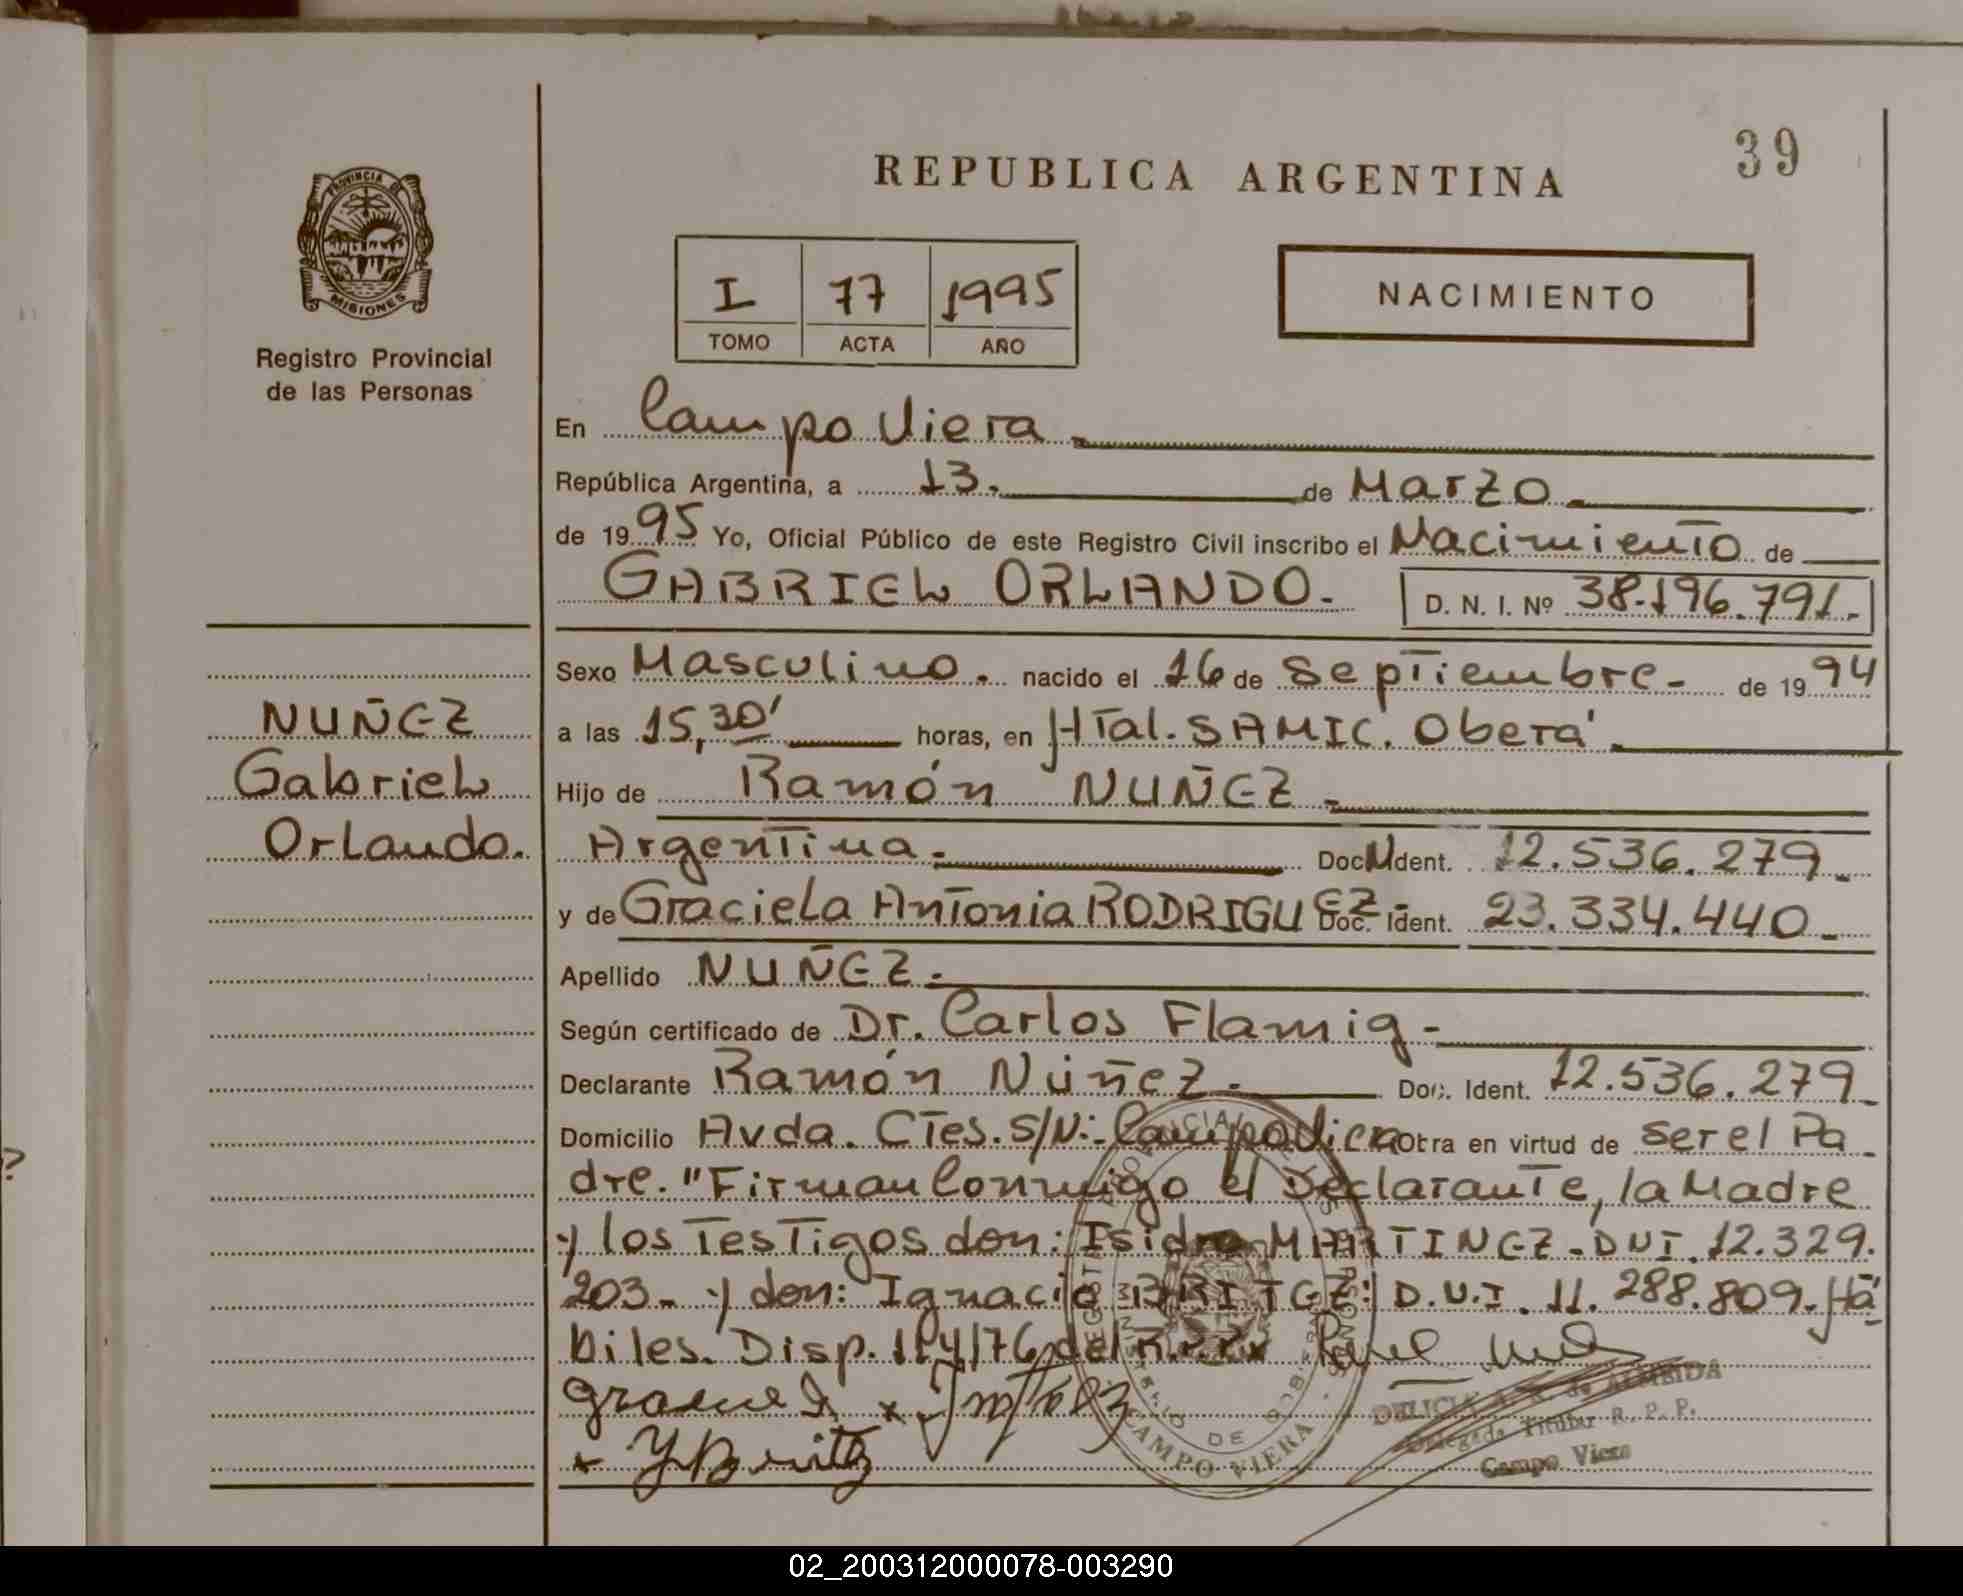 39
REPUBLICA ARGENTINA
PROVINCIA DE
MISIONES
Registro Provincial
de las Personas
I 77 1995
TOMO ACTA AÑO
NACIMIENTO
En Campo Viera
República Argentina, a 13. de Marzo
de 1995 Yo, Oficial Público de este Registro Civil inscribo el Nacimiento de
GABRIEL ORLANDO. D. N. I. Nº 38.196.791.
Sexo Masculino. nacido el 16 de septiembre - de 1994
NUÑEZ
Gabriel
Orlando.
a las 15,30' horas, en Htal. SAMIC. Oberá
Hijo de Ramón NUÑEZ
Argentina. Doc. Ident. 12.536.279
y de Graciela Antonia RODRIGUEZ Doc. Ident. 23.334.440
Apellido NUÑEZ.
Según certificado de Dr. Carlos Flamig -
Declarante Ramón Núñez. Doc. Ident. 12.536.279
Domicilio Avda. Ctes. S/N: Campo Viera Obra en virtud de ser el Pa
dre. "Firman Conmigo el Declarante, la Madre
y los Testigos don: Isidro MARTINEZ - DNI. 12.329.
203 - y don: Ignacio BRITEZ: D.N.I. 11.288.809. Há
biles. Disp. 114/76 del R.P.P.
DELICIA de ALMEIDA
Delegada Titular R. P. P.
Campo Viera
CAMPO VIERA
MINISTERIO DE GOBIERNO
02_200312000078-003290